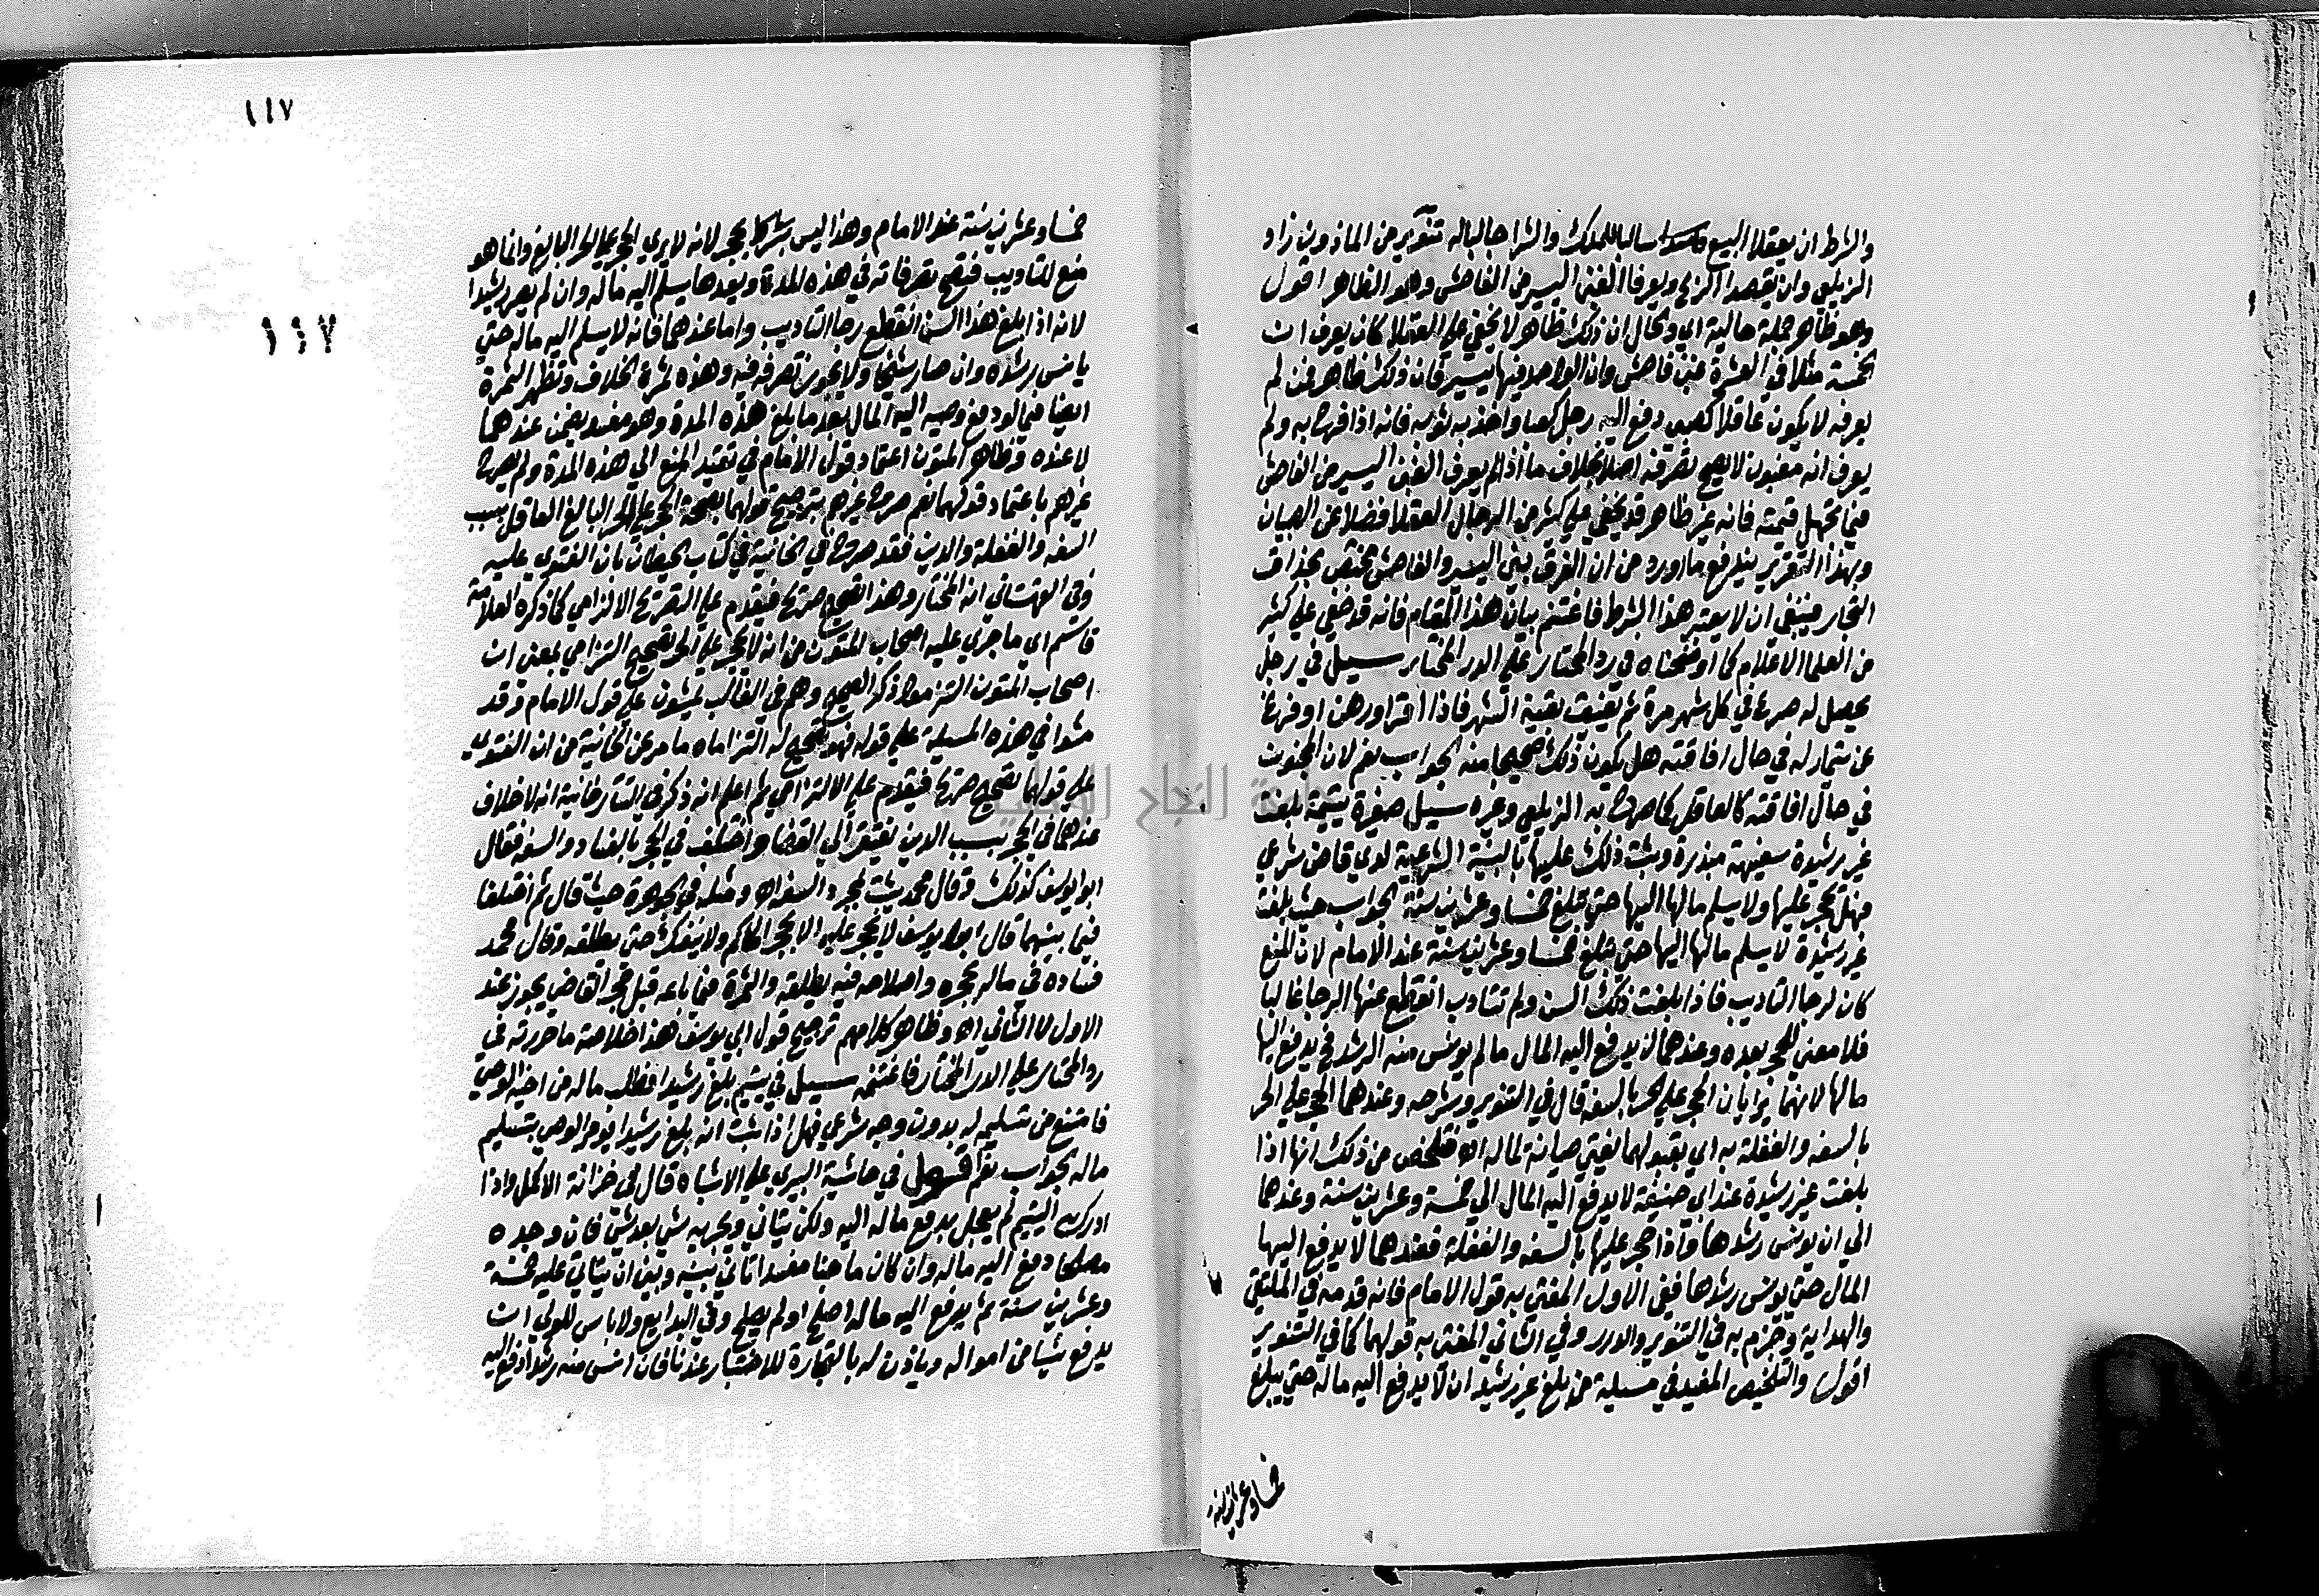 والشرط ان يعقلا البيع سالبا للملك والشرا جالبا له تنوير من الماذون زاد
الزيلعي وان يقصدا الربح ويعرفا الغبن اليسير من الفاحش وهو الظاهر اقول
وهو ظاهر جملة حالية اي والحال ان ذلك ظاهر لا يخفى على العقلا كان يعرف ان
الخمسة مثلا في العشرة غبن فاحش وان الواحد فيها يسير فان ذلك ظاهر فمن لم
يعرفه لا يكون عاقلا كصبي دفع اليه رجل كعبا واخذ به ثوبه فانه اذا فرح به ولم
يعرف انه مغبون لا يصح تصرفه اصلا بخلاف ما اذا لم يعرف الغبن اليسير من الفاحش
فيما تجهل قيمته فانه غير ظاهر قد يخفى على كثير من الرجال العقلا فضلا عن الصبيان
وبهذا التقرير يندفع ما اورد من ان الفرق بين اليسير والفاحش مختص بحذاق
التجار فينبغي ان لا يعتبر هذا الشرط فاغتنم بيان هذا المقام فانه قد خفي على كثير
من العلما الاعلام كما اوضحناه في رد المحتار على الدر المختار سيل في رجل
يحصل له صرع في كل شهر مرة ثم يفيق بقية الشهر فاذا اقر او رهن او فرغ
عن تيمار له في حال افاقته هل يكون ذلك صحيحا منه الجواب نعم لان المجنون
في حال افاقته كالعاقل كما صرح به الزيلعي وغيره سيل صغيرة يتيمة بلغت
غير رشيدة سفيهة مبذرة وثبت ذلك عليها بالبينة الشرعية لدي قاض شرعي
فهل يحجر عليها ولا يسلم مالها اليها حتى تبلغ خمسا وعشرين سنة الجواب حيث بلغت
غير رشيدة لا يسلم مالها اليها حتى تبلغ خمسا وعشرين سنة عند الامام لان المنع
كان لرجا التاديب فاذا بلغت ذلك السن ولم تتادب انقطع عنها الرجا غالبا
فلا معنى للحجر بعده وعندهما لا يدفع اليه المال ما لم يونس منه الرشد فح يدفع اليها
مالها لانهما يرايان الحجر على الحر بالسفه قال في التنوير وشرحه وعندهما الحجر على الحر
بالسفه والغفلة به اي بقولهما يفتى صيانة لماله اه فتلخص من ذلك انها اذا
بلغت غير رشيدة عند ابي حنيفة لا يدفع اليه المال الي خمسة وعشرين سنة وعندهما
الي ان يونس رشدها واذا حجر عليها بالسفه والغفلة فعندهما لا يدفع اليها
المال حتى يونس رشدها ففي الاول المفتى به قول الامام فانه قدمه في الملتقى
والهداية وجزم به في التنوير والدرر وفي الثاني المفتى به قولهما كما في التنوير
اقول والتلخيص المفيد في مسيلة من بلغ غير رشيد ان لا يدفع اليه ماله حتى يبلغ
خمسا وعشرين سنة
١١٧
١١٧
خمسا وعشرين سنة عند الامام وهذا ليس بحجر لانه لا يري الحجر على الحر البالغ وانما هو
منع للتاديب فتصح تصرفاته في هذه المدة وبعدها يسلم اليه ماله وان لم يصر رشيدا
لانه اذا بلغ هذا السن انقطع رجا التاديب واما عندهما فانه لا يسلم اليه ماله حتى
يانس رشده وان صار شيخا ولا يجوز تصرفه فيه وهذه ثمرة الخلاف وتظهر الثمرة
ايضا فيما لو دفع وصيه اليه المال بعد ما بلغ هذه المدة وهو مفسد يضمن عندهما
لا عنده وظاهر المتون اعتماد قول الامام في تقييد المنع الي هذه المدة ولم يصرح
غيرهم باعتماد قولهما نعم صرح غيرهم بترجيح قولهما بصحة الحجر على الحر البالغ العاقل بسبب
السفه والغفلة والدين فقد صرح في الخانية في كتاب الحيطان بان الفتوى عليه
وفي القهستاني انه المختار وهذا تصحيح صريح فيقدم على التصريح الالتزامي كما ذكره العلامة
قاسم اي ما جرى عليه اصحاب المتون من انه لا يحجر على الحر تصحيح التزامي بمعنى ان
اصحاب المتون التزموا ذكر الصحيح وهم في الغالب يمشون على قول الامام وقد
مشوا في هذه المسيلة على قوله فهو تصحيح له التزاما وما مر عن الخانية من ان الفتوى
على قولهما تصحيح صريح فيقدم على الالتزامي ثم اعلم انه ذكر في التتارخانية انه لا خلاف
عندهما في الحجر بسبب الدين يفتقر الي القضا واختلف في الحجر بالفساد والسفه فقال
ابو يوسف كذلك وقال محمد يثبت بمجرد السفه اه ومثله في الجوهرة حيث قال ثم اختلفا
فيما بينهما قال ابو يوسف لا يحجر عليه الا بحجر الحاكم ولا ينفك حتى يطلقه وقال محمد
فساده في ماله يحجره واصلاحه فيه يطلقه والثمرة فيما باعه قبل حجر القاضي يجوز عند
الاول لا الثاني اه وظاهر كلامهم ترجيح قول ابي يوسف هذا خلاصة ما حررته في
رد المحتار على الدر المختار فاغتنمه سيل في يتيم بلغ رشيدا فطلب ماله من اخيه الوصي
فامتنع من تسليمه له بدون وجه شرعي فهل اذا ثبت انه بلغ رشيدا يومر الوصي بتسليم
ماله الجواب نعم اقول في حاشية البيري على الاشباه قال في خزانة الاكمل واذا
ادرك اليتيم لم يعجل بدفع ماله اليه ولكن يتاني ويجربه شي بعد شي فان وجده
مصلحا دفع اليه ماله وان كان ماجنا مفسدا تاني بينه وبين ان يتاني عليه خمسة
وعشرين سنة ثم يدفع اليه ماله اصلح او لم يصلح وفي البدايع ولا باس للولي ان
يدفع شيا من امواله وياذن له بالتجارة للاختبار عندنا فان انس منه رشدا دفع اليه
جامعة النجاح الوطنية